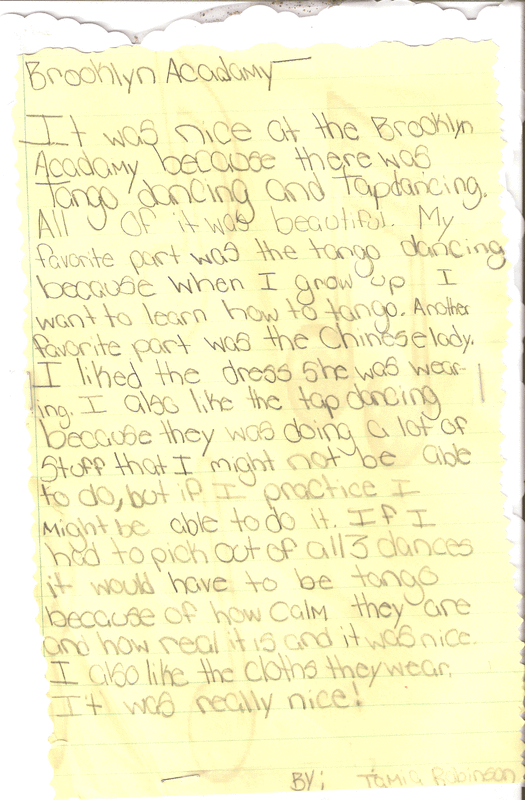 Brooklyn Acadamy
It was nice at the Brooklyn
Acadamy because there was
Tango dancing and Tapdancing.
All Of it was beautiful. My
favorite part was the tango dancing
because when I grow up I
want to learn how to tango. Another
favorite part was the Chinese lady.
I liked the dress she was wear-
ing. I also like the tap dancing
because they was doing a lot of
stuff that I might not be able
to do, but if I practice I
might be able to do it. If I
had to pick out of all 3 dances
it would have to be tango
because of how calm they are
and how real it is and it was nice.
I also like the cloths they wear.
It was really nice!
BY: Tamia Robinson